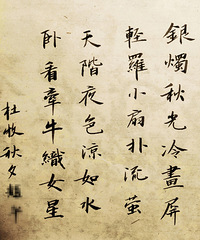 銀燭秋光冷畫屏
輕羅小扇扑流萤
天階夜色涼如水
卧看牽牛織女星
杜牧秋夕